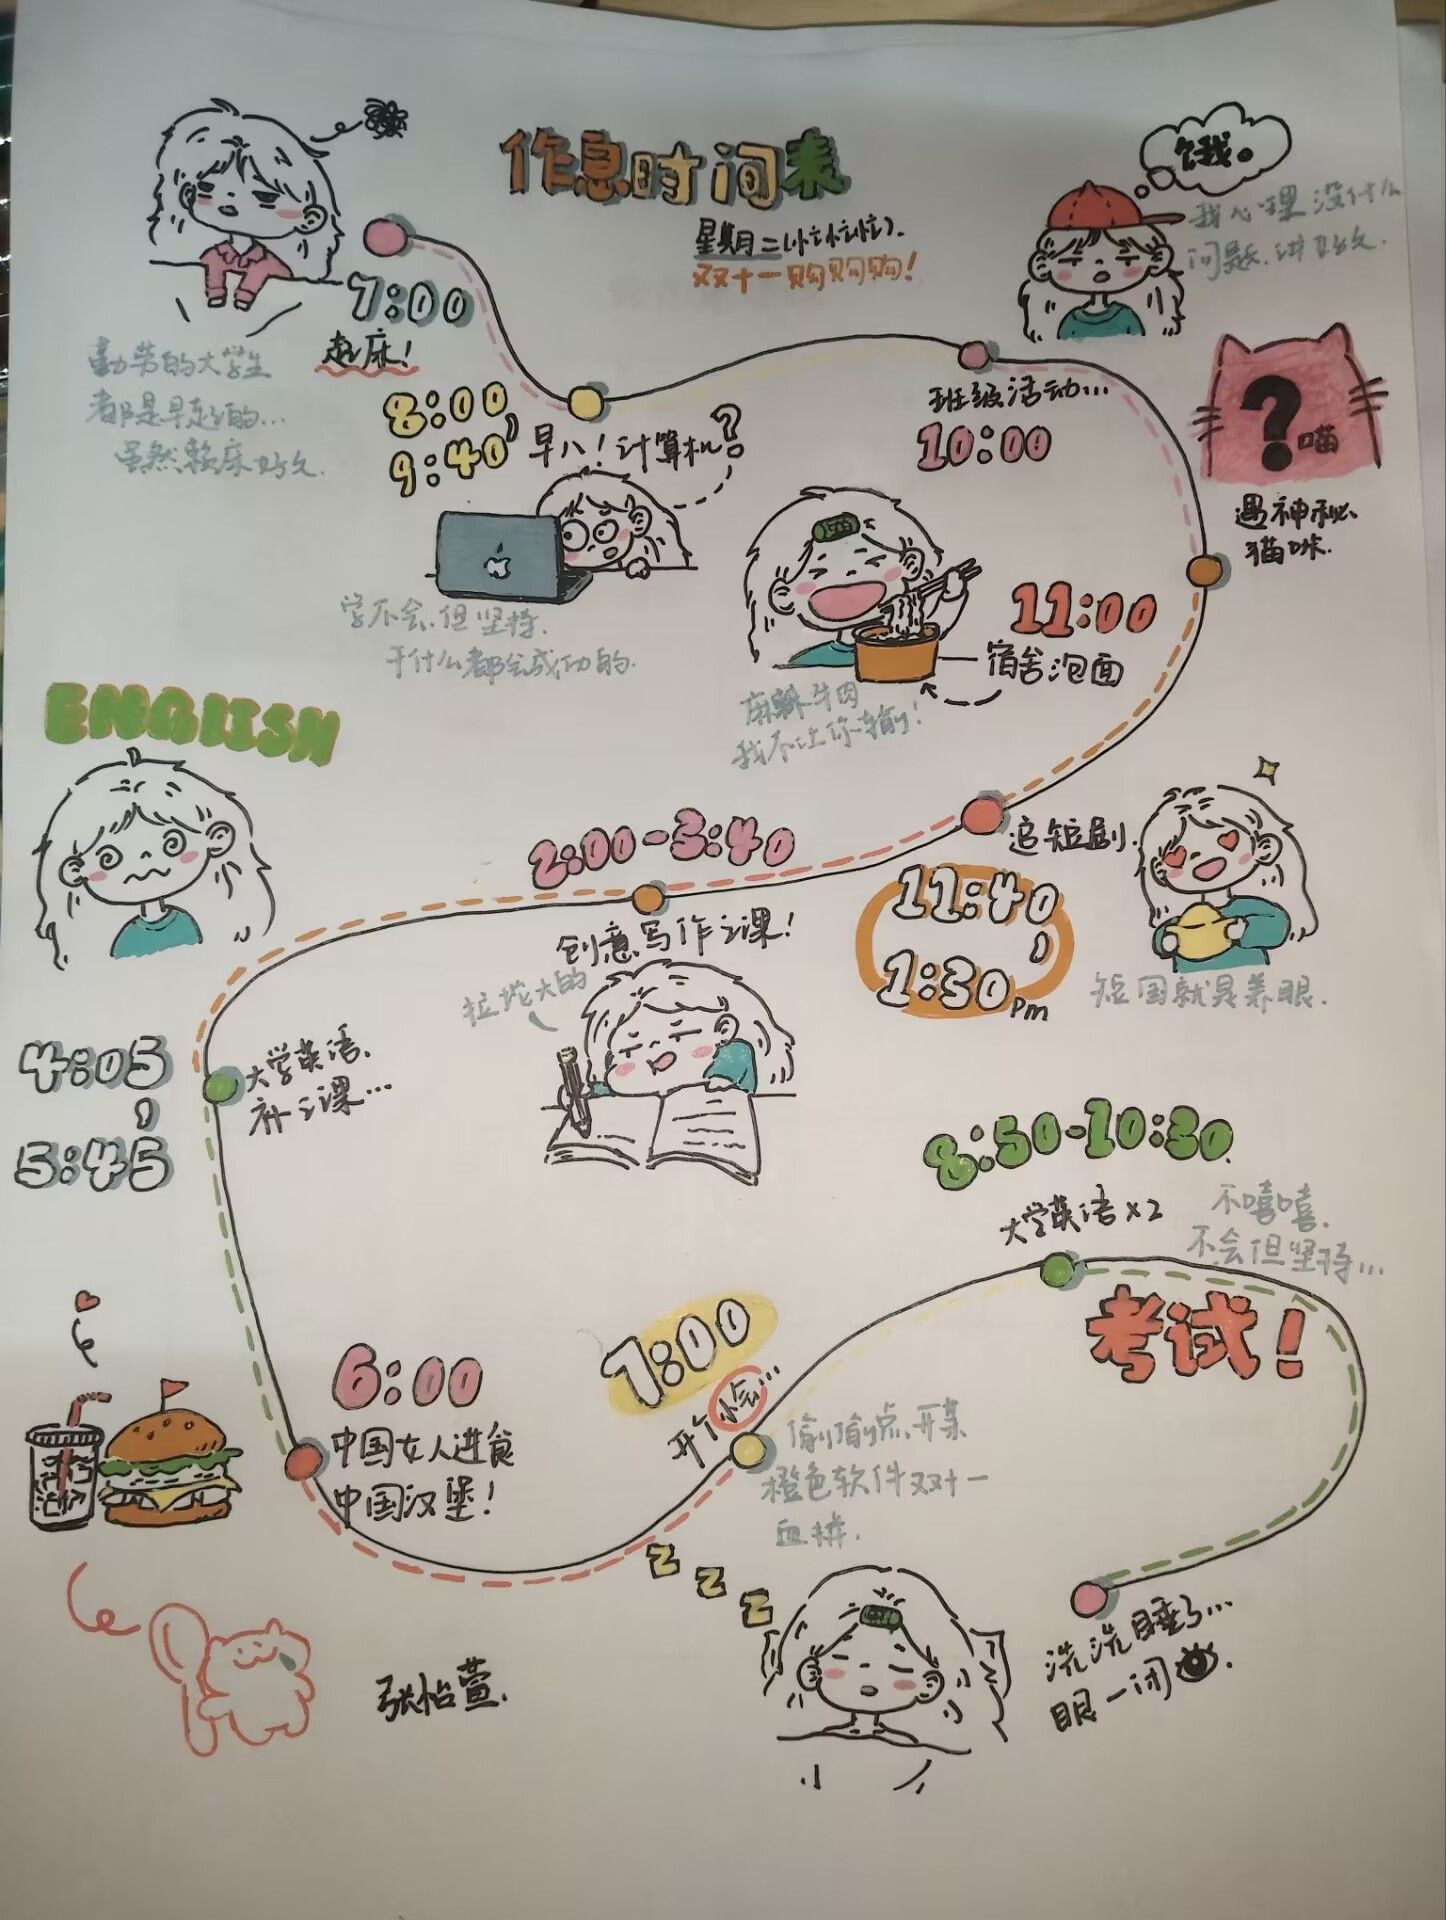 作息时间表
星期二(忙忙忙).
双十一购购购!
7:00
起床!
勤劳的大学生
都是早起的...
虽然赖床好久.
8:00,
9:40
早八!计算机?
学不会,但坚持.
干什么都会成功的.
饿。
我心里没什么
问题,讲好久.
班级活动...
10:00
?喵
遇神秘
猫咪.
11:00
宿舍泡面
麻辣牛肉
我不让你输!
追短剧.
11:40,
1:30pm
短国就是养眼.
2:00-3:40
创意写作之课!
拉垮大的
ENGLISH
4:05,
5:45
大学英语.
补之课...
6:00
中国女人进食
中国汉堡!
7:00
开个小会...
偷偷点开某
橙色软件双十一
血拼.
8:50-10:30
大学英语×2
不嘻嘻.
不会但坚持...
考试!
z z z
洗洗睡了...
眼一闭.
张怡萱.